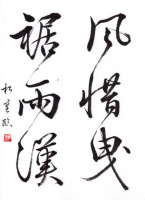 風惜曳
裾雨漢